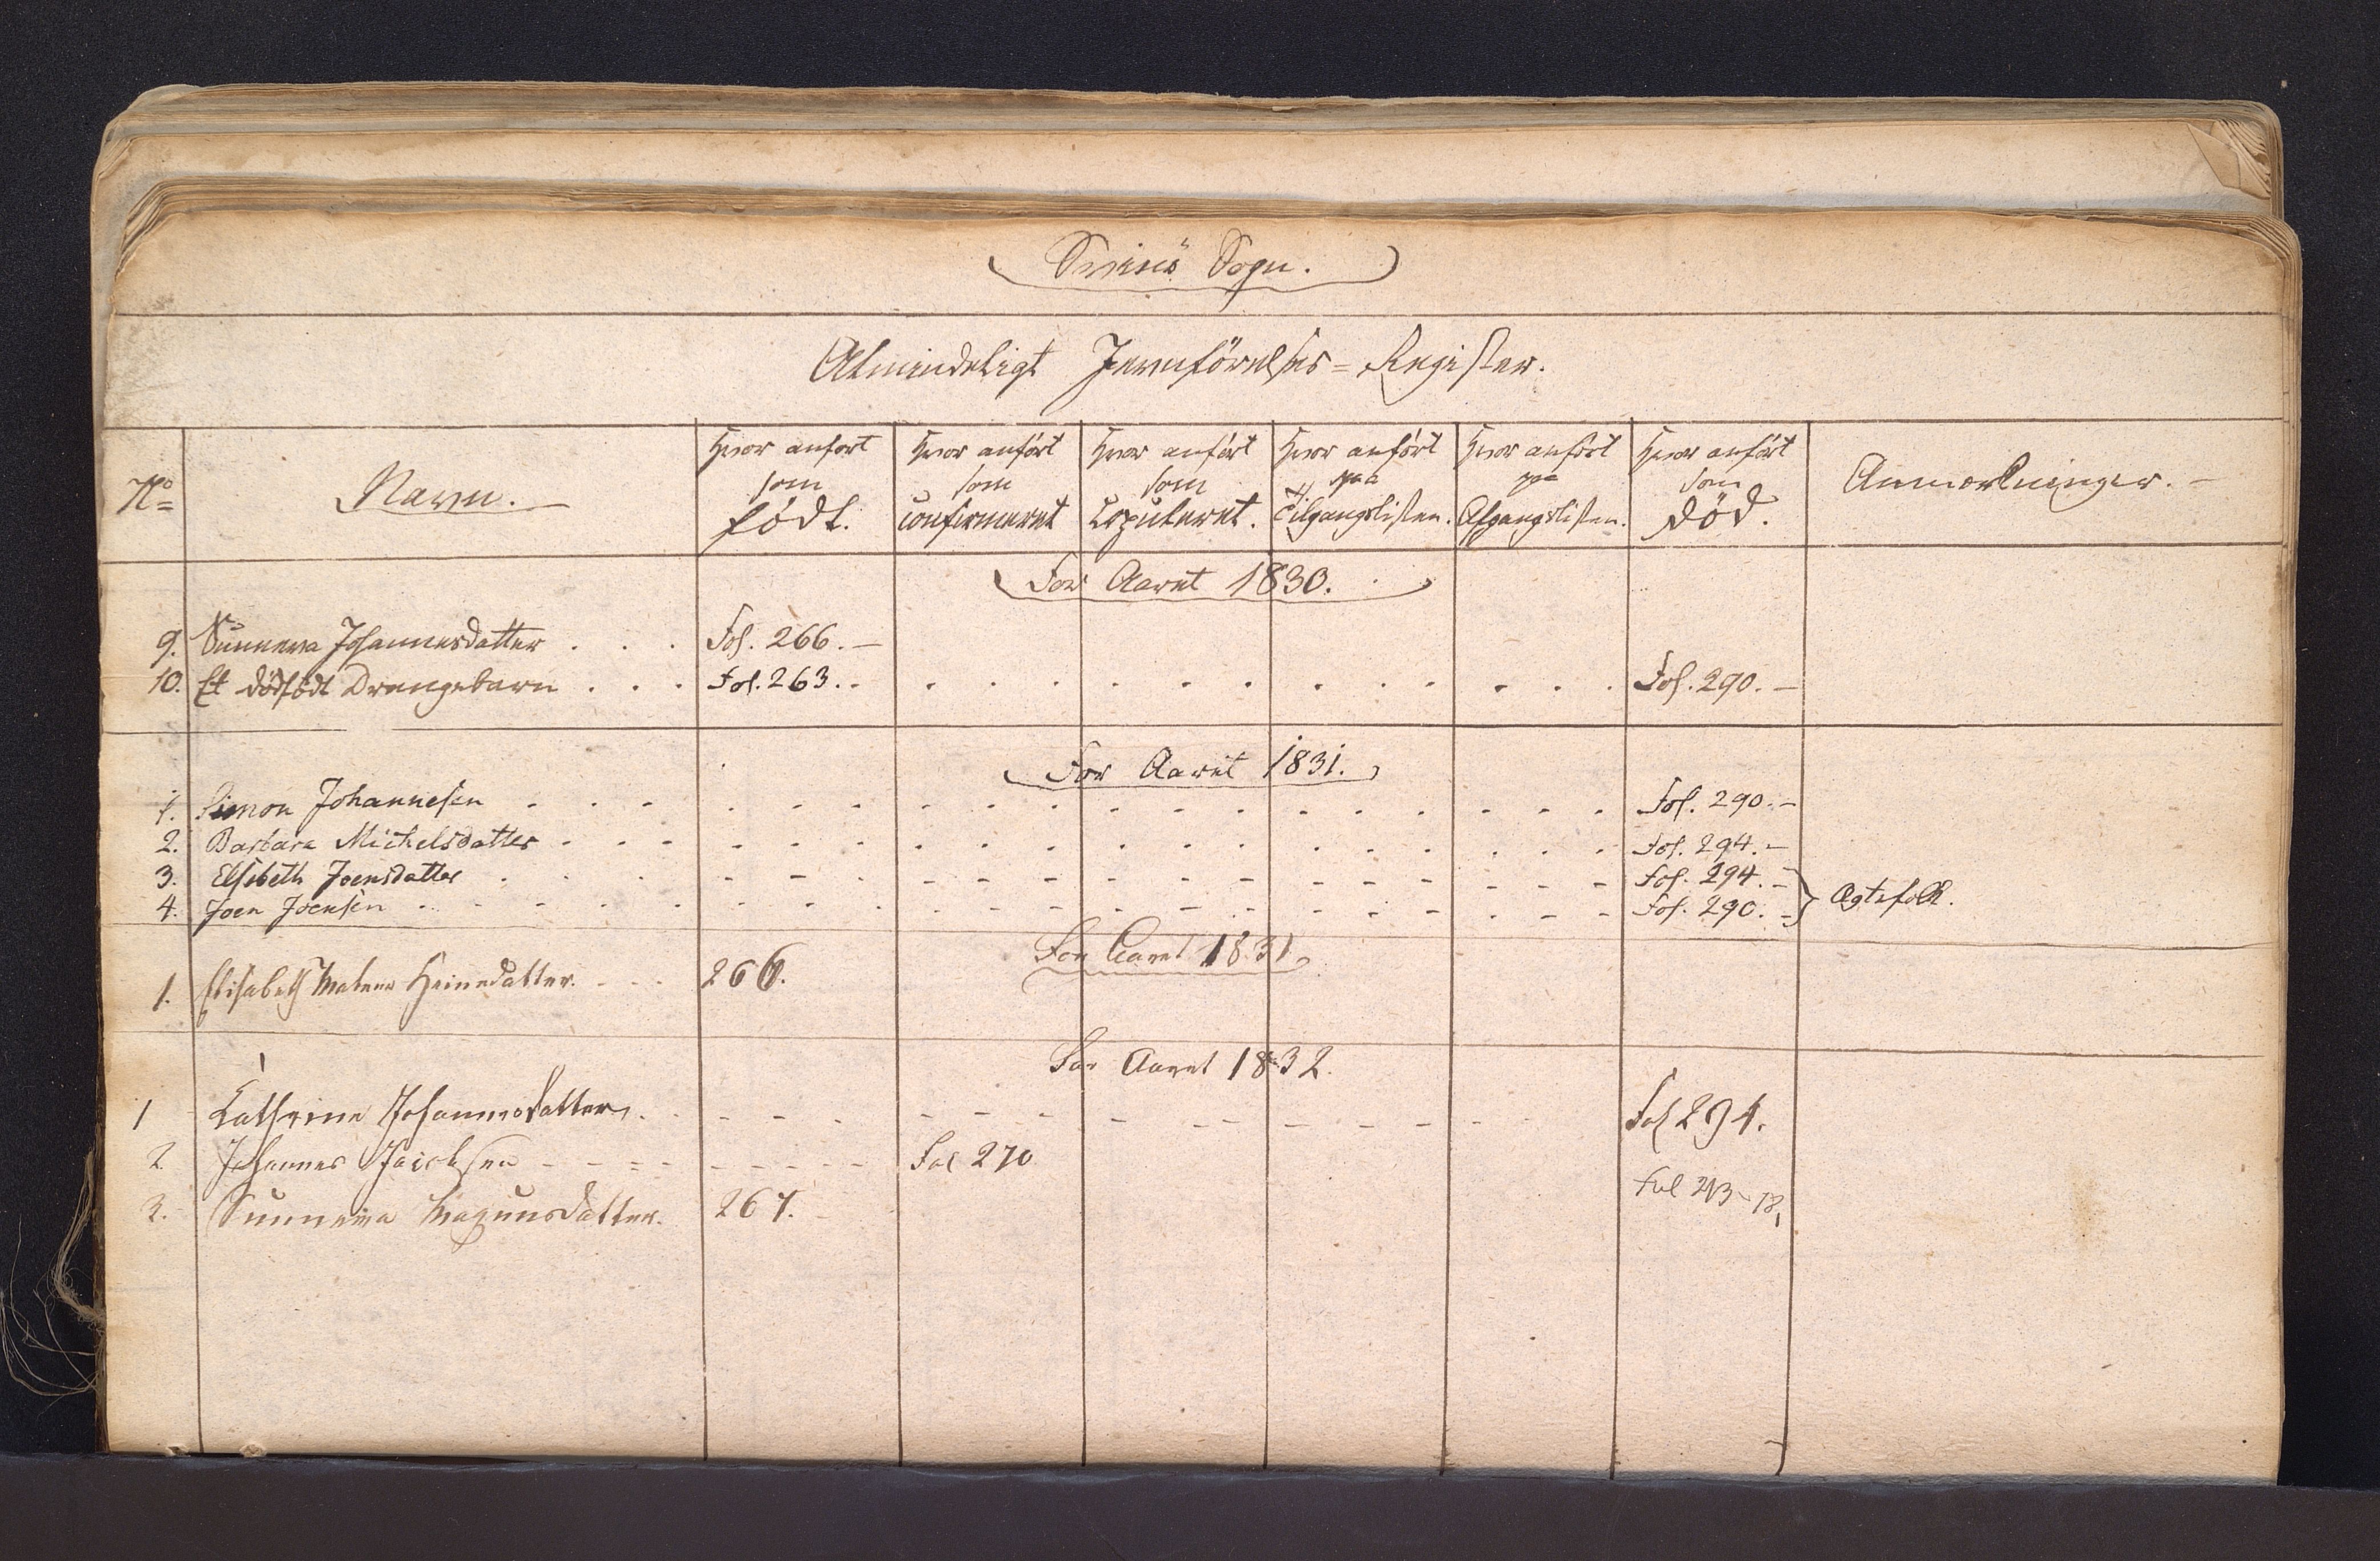 Svinö Sogn.
Almindeligt Jevnförelses=Register.
No Navn. Hvor anfört som födt. Hvor anfört som confirmeret Hvor anfört som Copuleret. Hvor anfört paa Tilgangslisten. Hvor anfört paa Afgangslisten. Hvor anfört som död. Anmærkninger.
For Aaret 1830.
9. Sunneva Johannesdatter . . . Fol. 266.
10. Et dödfödt Drengebarn . . . Fol. 263. Fol. 290.
For Aaret 1831.
1. Simon Johannesen Fol. 290.
2. Barbara Michelsdatter Fol. 294.
3. Elsebeth Joensdatter Fol. 294.
4. Joen Joensen Fol. 290. Ægtefolk.
For Aaret 1831
1. Elisabeth Malene Heinedatter. 266.
For Aaret 1832.
1 Cathrine Johannesdatter. Fol 294.
2 Johannes Jacobsen Fol 270
3. Sunneva Magnusdatter. 267. Fol